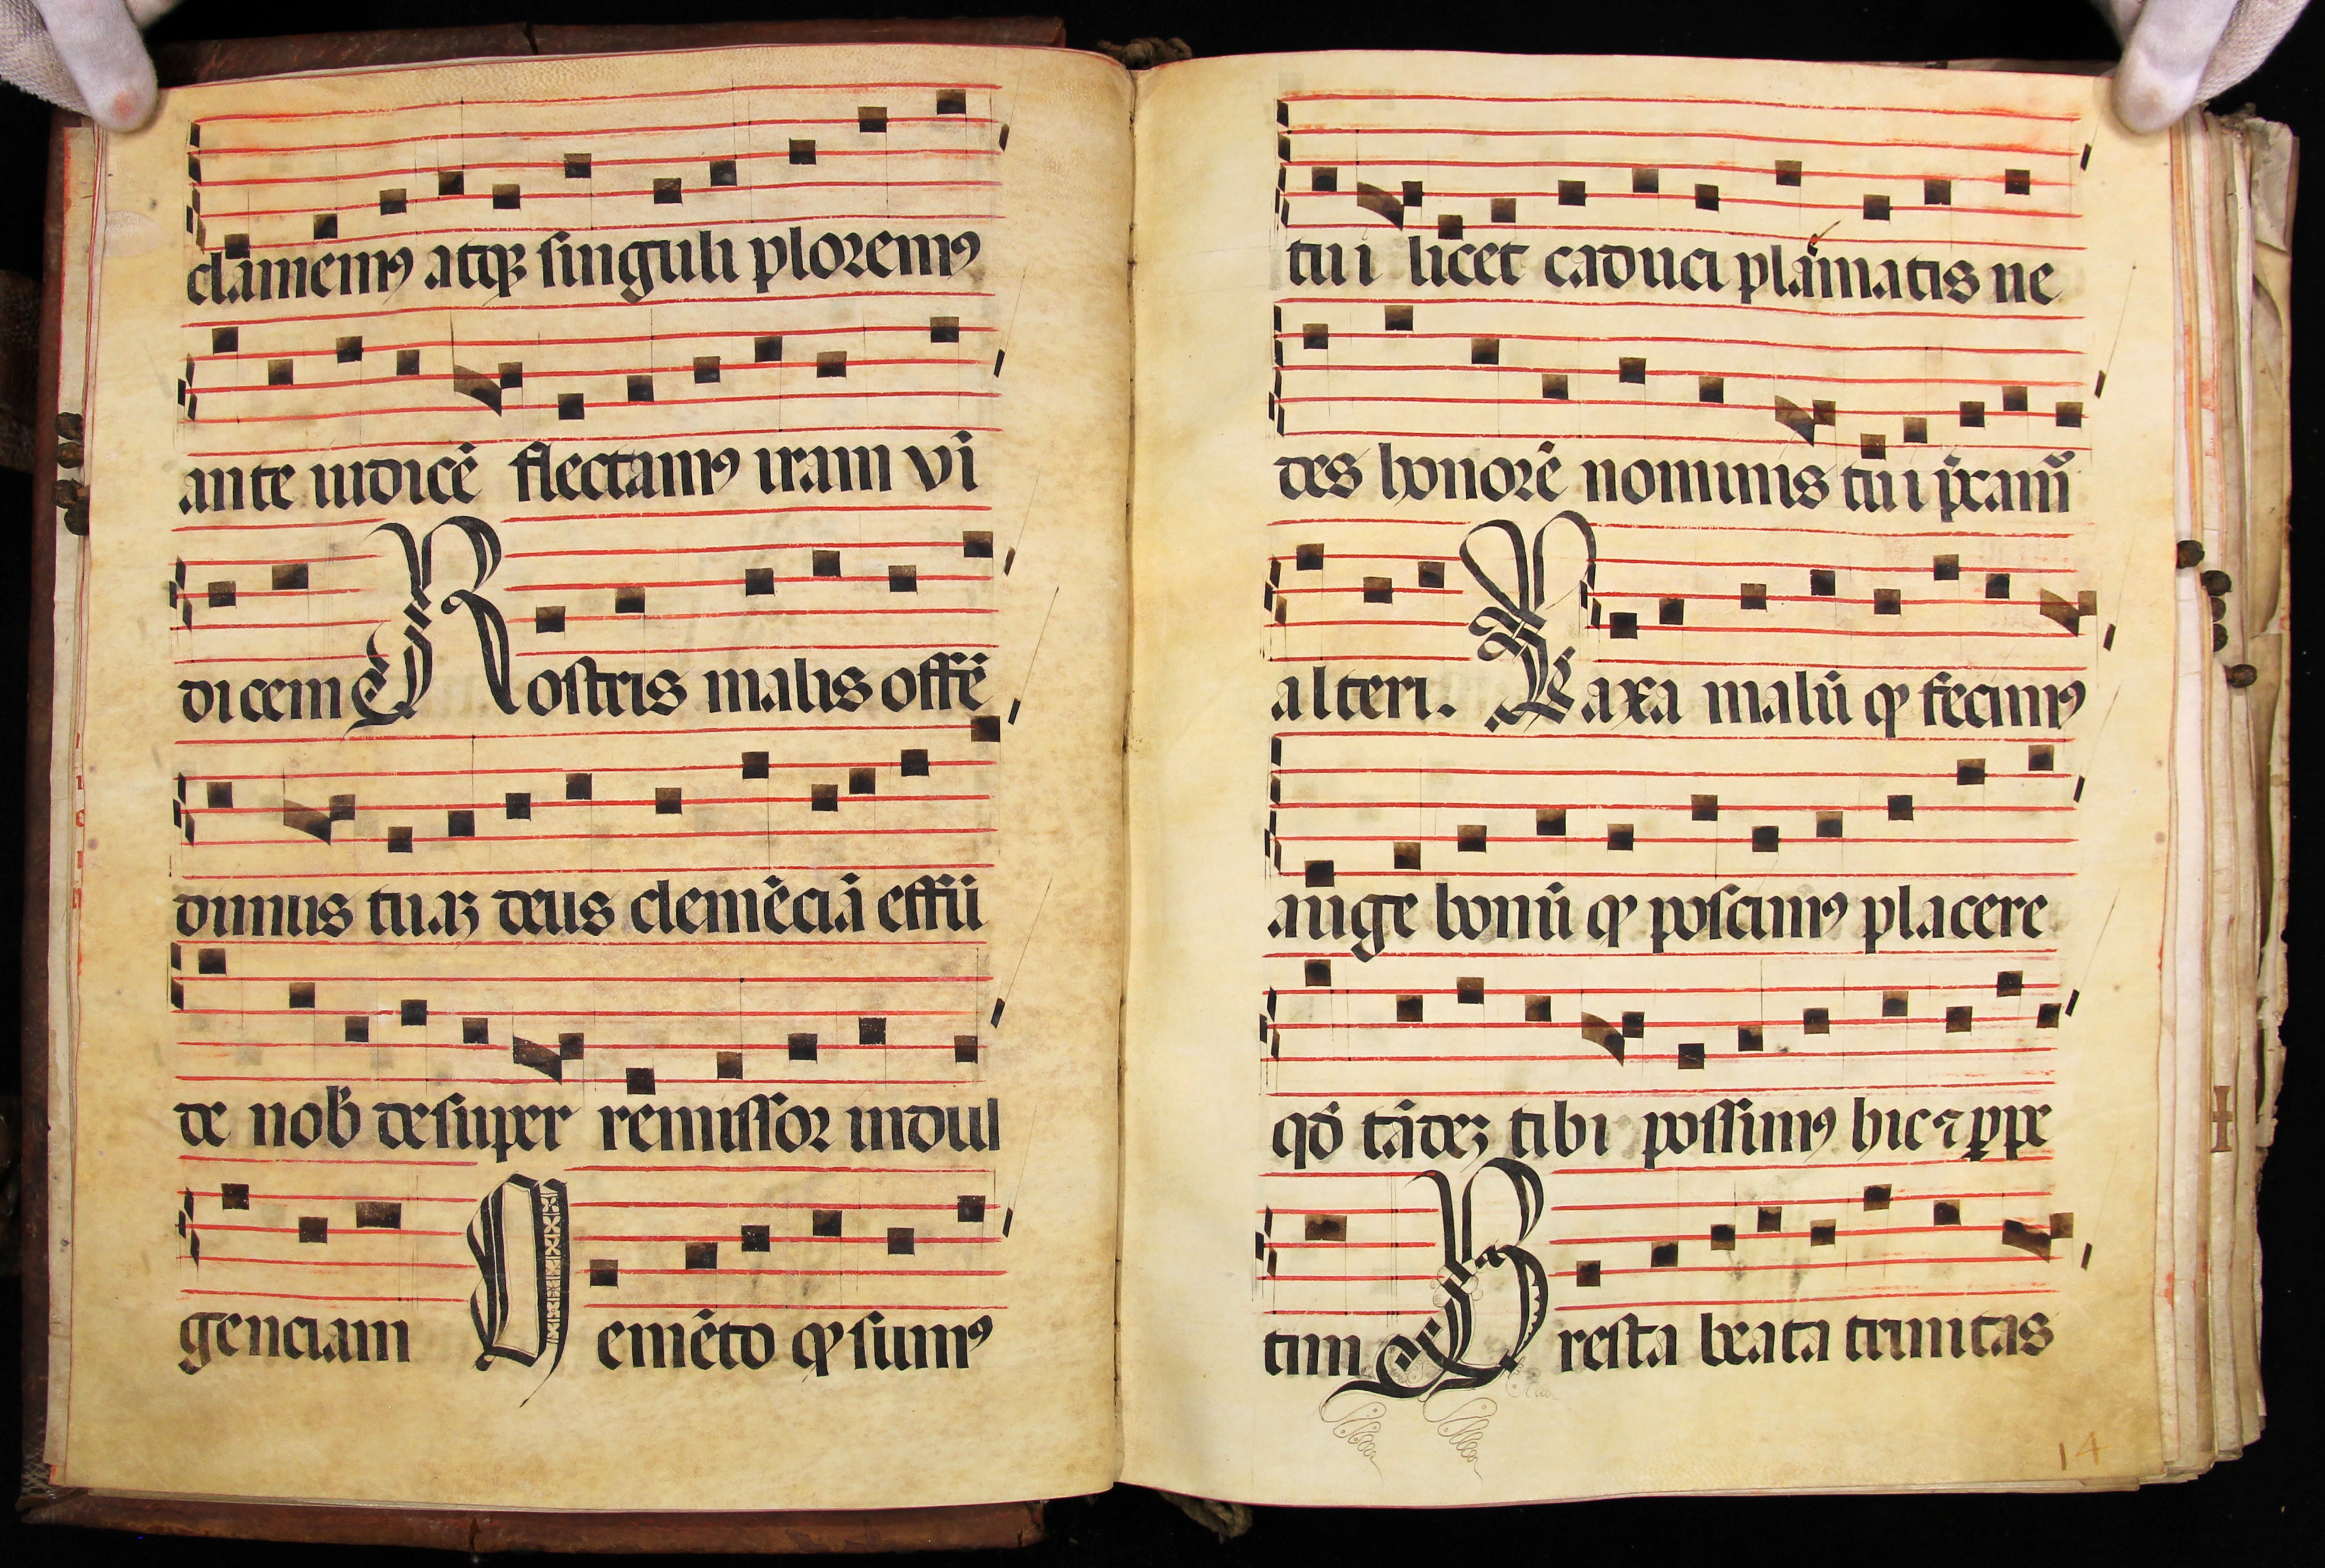 clamemꝰ atqꝫ singuli ploremꝰ
ante iudicē flectamꝰ iram vi
dicem Nostris malis offē
dimus tuaꝫ deus clemēciā effū
de nob desuper remissor indul
genciam Memēto ꝙ sumꝰ
tui licet caduci plāmatis ne
des honorē nominis tui p̄cam̄
alteri. Laxa malū ꝙ fecimꝰ
auge bonū ꝙ poscimꝰ placere
qđ tādeꝫ tibi possimꝰ hic ⁊ ꝑpe
tim Presta beata trinitas
14